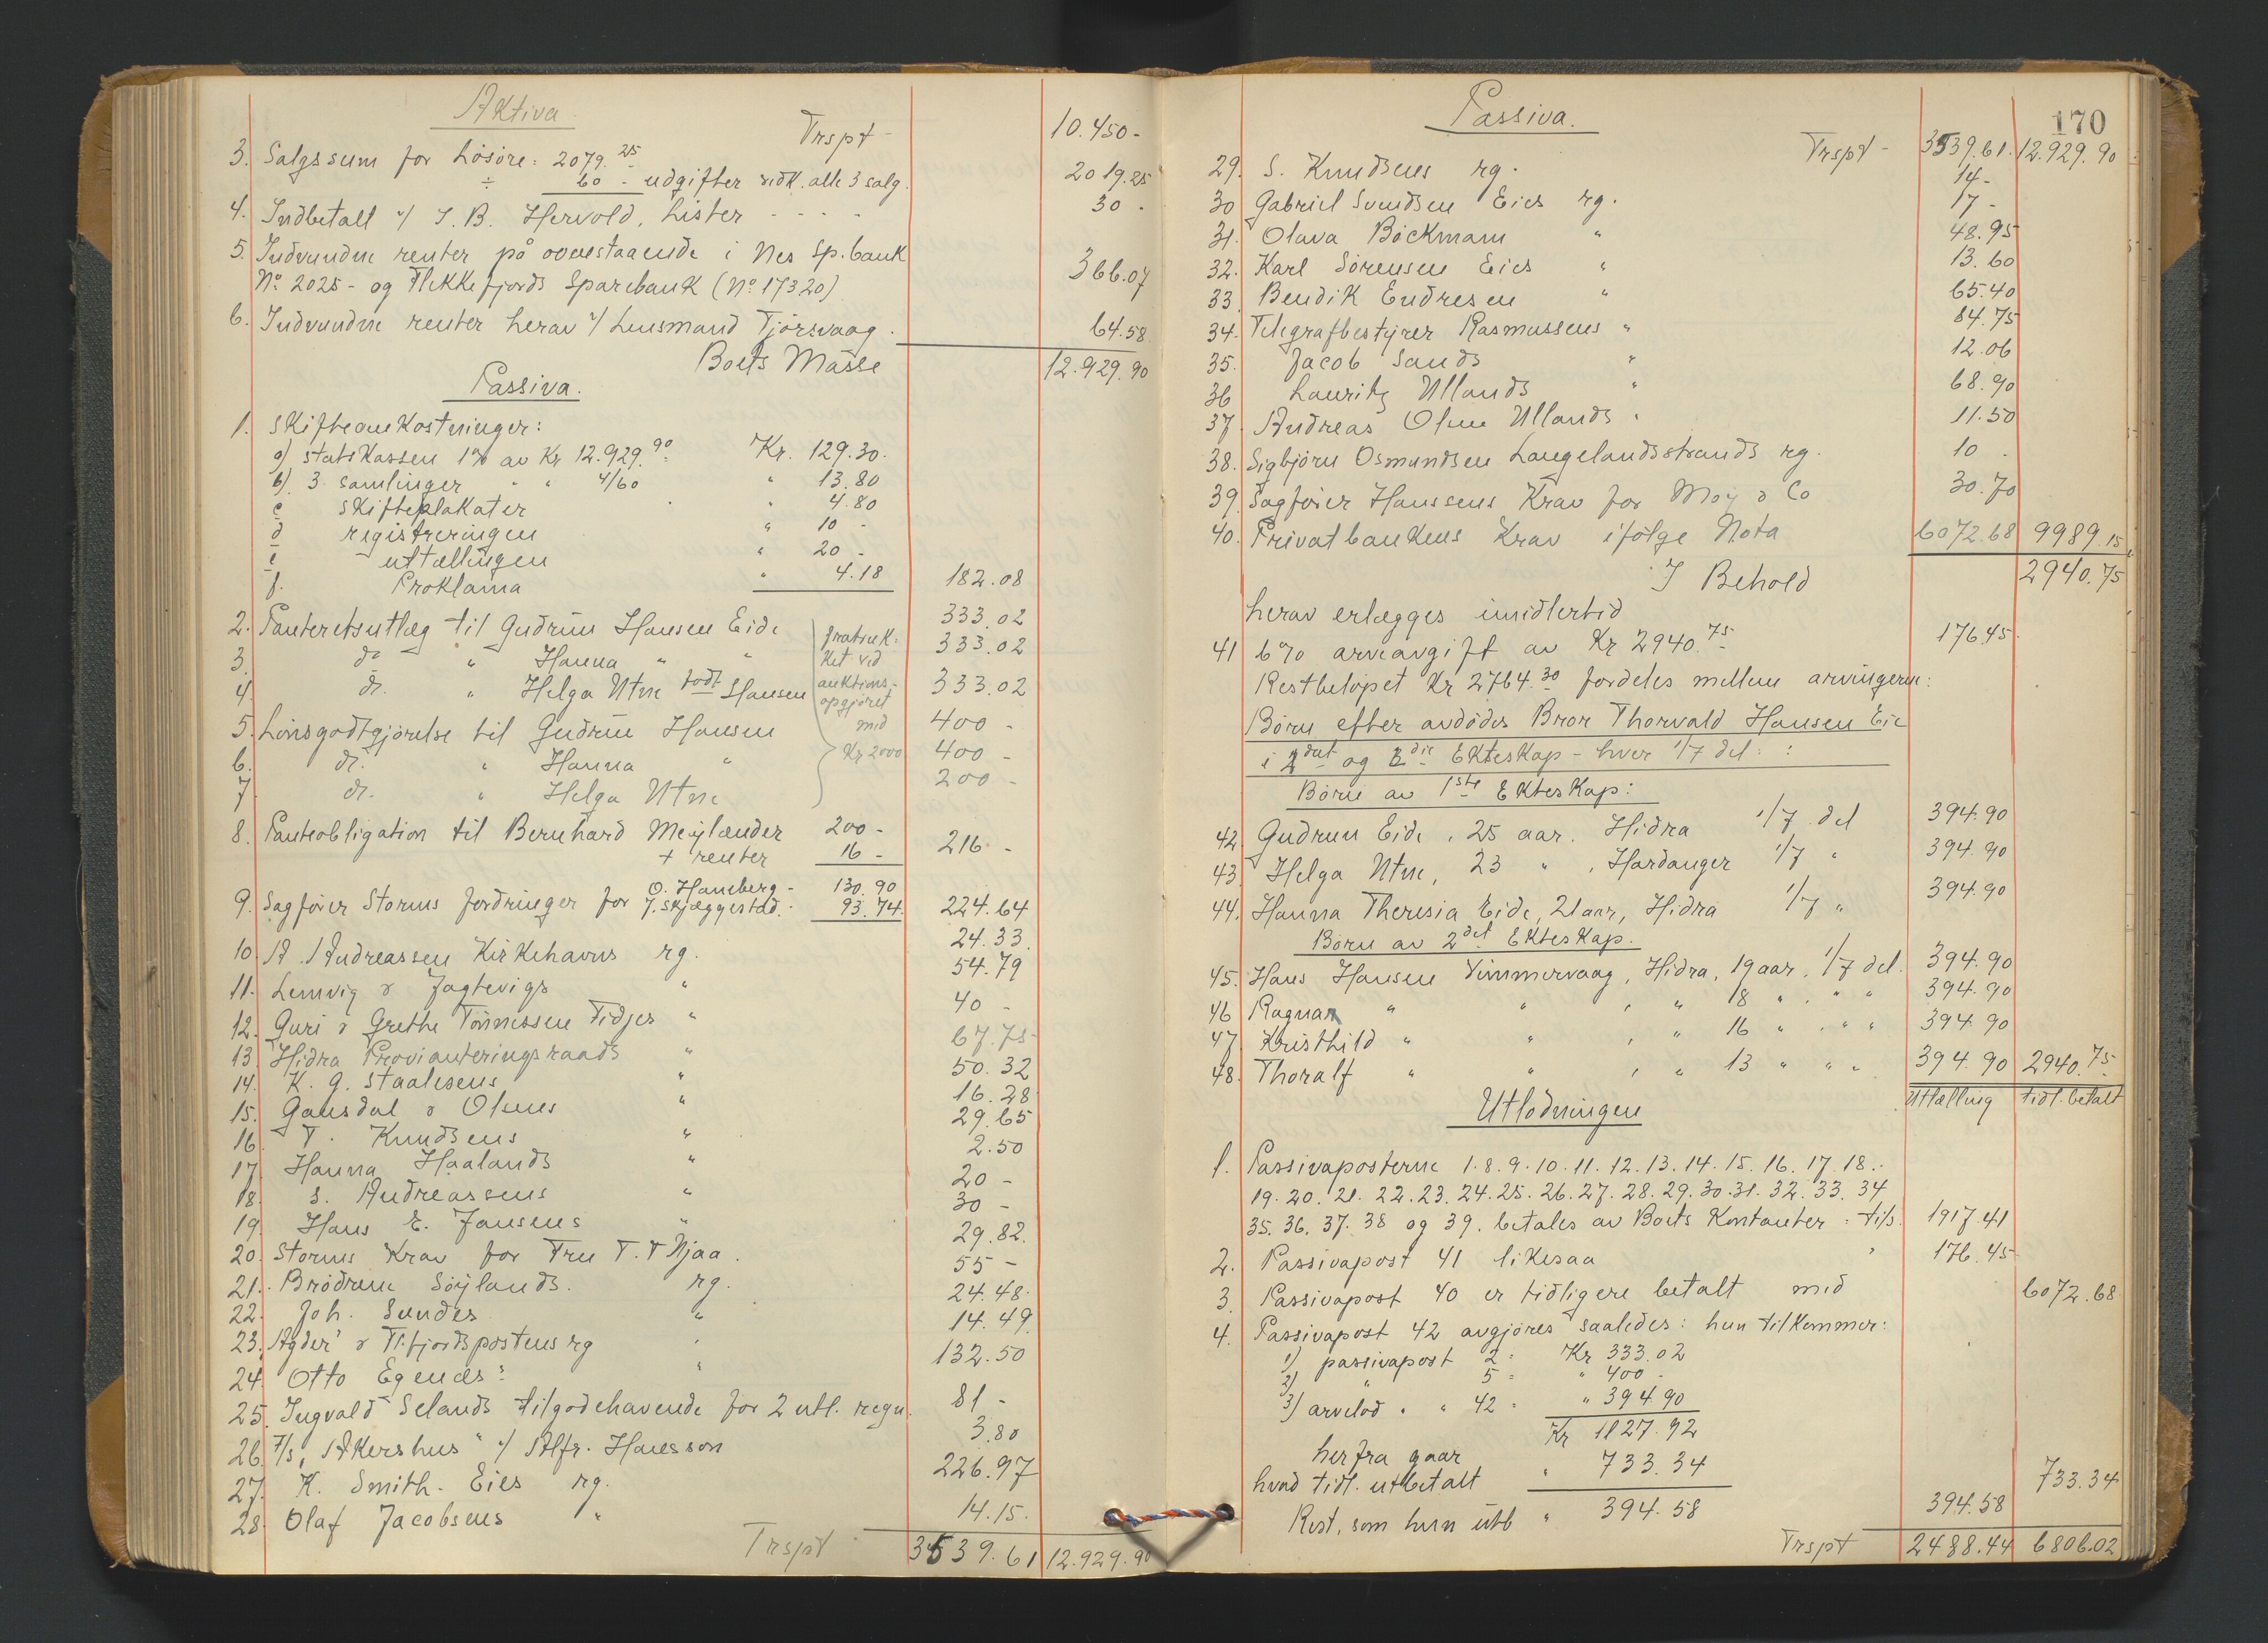 Aktiva
Trspt - 10.450 -
3. Salgssum for Løsøre: 2079.25
÷ 60 - udgifter vedk. alle 3 salg. 2019.25
4. Indbetalt v/ J. B. Hervold, Lister - - - - 30 -
5. Indvundne renter på ovenstaaende i Nes Sp.bank
No 2025 - og Flekkefjords Sparebank (No 17320) 366.07
6. Indvundne renter herav v/ Lensmand Tjörsvaag. 64.58
Boets Masse 12.929.90
Passiva.
1. Skifteomkostninger:
a) statskassen 1% av Kr 12.929.90 Kr. 129.30.
b) 3 samlinger " " 4/60 " 13.80
c skifteplakater " 4.80
d registreringen " 10 -
e uttællingen " 20 -
f. Proklama " 4.18 182.08
2. Panteretsutlæg til Gudrun Hansen Eide 333.02
3. do " Hanna " " 333.02
4. do. " Helga Utne født Hansen 333.02
5. Lönsgodtgjörelse til Gudrun Hansen 400 -
6. do. " Hanna " 400 -
7 do. " Helga Utne 200 -
fratruk-
ket ved
auktions-
opgjöret
med
Kr 2000
8. Panteobligation til Bernhard Meylænder 200 -
+ renter 16 - 216 -
9. Sagförer Storms fordringer for O. Hamberg - 130.90
J. Skjæggestad. - 93.74 224.64
10. A. Andreassen Kirkehavns rg. 24.33
11. Lemvig & Jagtevigs " 54.79
12. Guri & Grethe Tönnessen Fidjes " 40 -
13. Hidra Provianteringsraads " 67.75
14. K. G. Staalesens " 50.32
15. Gausdal & Olsens " 16.28
16. T. Knudsens " 29.65
17 Hanna Haalands " 2.50
18. S. Andreassens " 20 -
19 Hans E. Jansens " 30 -
20 Storms Krav for Fru T. T Njaa. 29.82.
21. Brödrene Söylands. rg. 55 -
22. Joh. Sundes " 24.48.
23. "Agder" & Fl.fjordspostens rg " 14.49
24. Otto Egenæs: " 132.50
25. Ingvald Selands tilgodehavende for 2 utl. regn. 81 -
26. F/s, "Akershus" v/ Alfr. Hansson 3.80
27. K. Smith - Eies rg. 226.97
28. Olaf Jacobsens " 14.15.
Trspt 3539.61 12.929.90
Passiva.
170
Trspt - 3539.61. 12.929.90
29. S. Knudsens rg. 14 -
30 Gabriel Svendsen Eies rg. 17 -
31. Olava Böckmann " 48.95
32. Karl Sörensen Eies " 13.60
33 Bendik Endresen " 65.40
34. Telegrafbestyrer Rasmussens " 84.75
35. Jacob Sands " 12.06
36 Lauritz Ullands " 68.90
37. Andreas Olsen Ullands " 11.50
38. Sigbjörn Osmundsen Langelandsstrands rg. 10 -
39. Sagförer Hanssens Krav for Moy & Co 30.70
40. Privatbankens Krav ifölge Nota 6072.68 9989.15
I Behold 2940.75
herav erlægges imidlertid
41 6% arveavgift av Kr 2940.75 176.45.
Restbelöpet Kr 2764.30 fordeles mellem arvingerne:
Børn efter avdödes Bror Thorvald Hansen Eie
i 1ste og 2det Ekteskap - hver 1/7 del:
Børn av 1ste Ekteskap:
42 Gudrun Eide, 25 aar. Hidra 1/7 del 394.90
43 Helga Utne, 23 " , Hardanger 1/7 " 394.90
44. Hanna Theresia Eide, 21 aar, Hidra 1/7 " 394.90
Børn av 2det Ekteskap.
45. Hans Hansen Vimmervaag, Hidra, 19 aar. 1/7 del. 394.90
46 Ragnar " " , " 18 " . " " 394.90
47. Kristhild " " , " 16 " . " " 394.90
48. Thoralf " " , " 13 " " " 394.90 2940.75
Utlodningen
Utælling tidl. betalt
1. Passivaposterne 1. 8. 9. 10. 11. 12. 13. 14. 15. 16. 17. 18.
19. 20. 21. 22. 23. 24. 25. 26. 27. 28. 29. 30. 31. 32. 33. 34
35. 36. 37. 38 og 39. betales av Boets Kontanter: tils. 1917.41
2. Passivapost 41 likesaa " 176.45
3. Passivapost 40 er tidligere betalt med 6072.68
4. Passivapost 42 avgjöres saaledes: hun tilkommer:
1) passivapost 2 = Kr 333.02
2) " 5 = " 400 -
3) arvelod " " 42 = " 394.90
Kr 1127.92
herfra gaar
hvad tidl. utbetalt " 733.34 733.34
Rest, som hun utb " 394.58 394.58
Trspt 2488.44 6806.02